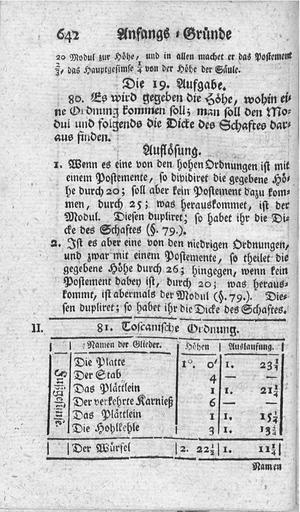 642 Anfangs-Gründe
20 Modul zur Höhe, und in allen machet er das Postement
2/3, das Hauptgesimse 1/4 von der Höhe der Säule.
Die 19. Aufgabe.
80. Es wird gegeben die Höhe, wohin ei-
ne Ordnung kommen soll; man soll den Mo-
dul und folgends die Dicke des Schaftes dar-
aus finden.
Auflösung.
1. Wenn es eine von den hohen Ordnungen ist mit
einem Postemente, so dividiret die gegebene Hö-
he durch 20; soll aber kein Postement dazu kom-
men, durch 25; was herauskommet, ist der
Modul. Diesen dupliret; so habet ihr die Di-
cke des Schaftes (§. 79.).
2. Ist es aber eine von den niedrigen Ordnungen,
und zwar mit einem Postemente, so theilet die
gegebene Höhe durch 26; hingegen, wenn kein
Postement dabey ist, durch 20; was heraus-
kommt, ist abermals der Modul (§. 79.). Die-
sen dupliret; so habet ihr die Dicke des Schaftes.
II. 81. Toscanische Ordnung.
Namen der Glieder. Höhen Auslaufung.
Fußgesimse
Die Platte 1°. 0′ 1. 23
Der Stab 4 —
Das Plättlein 1 1. 21
Der verkehrte Karnieß 6 —
Das Plättlein 1 1. 15
Die Hohlkehle 3 1. 13
Der Würfel 2. 22 1/2 1. 11
Namen